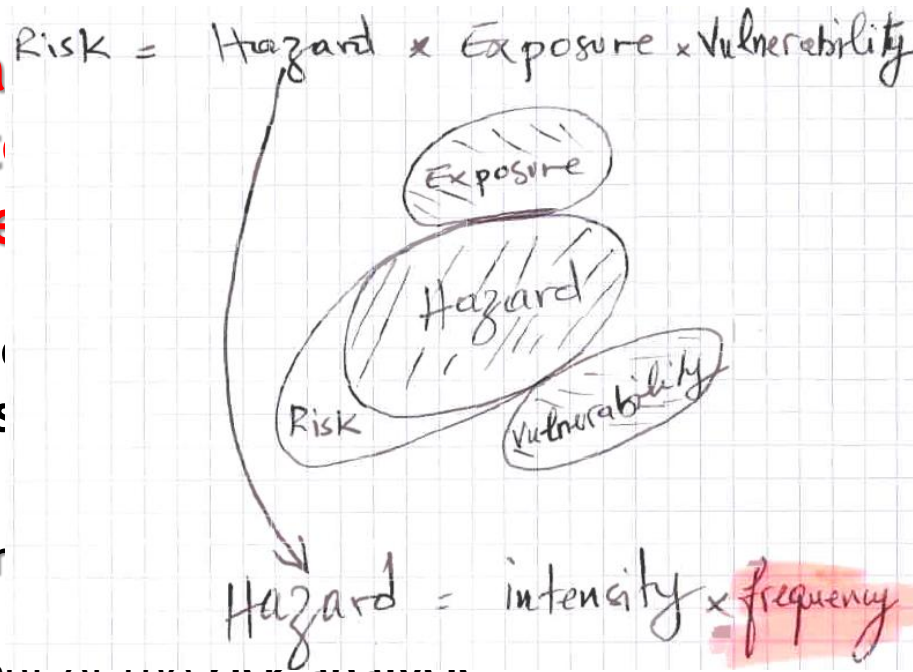 Risk = Hazard * Exposure * Vulnerability
Exposure
Hazard
Vulnerability
Risk
Hazard = intensity * frequency